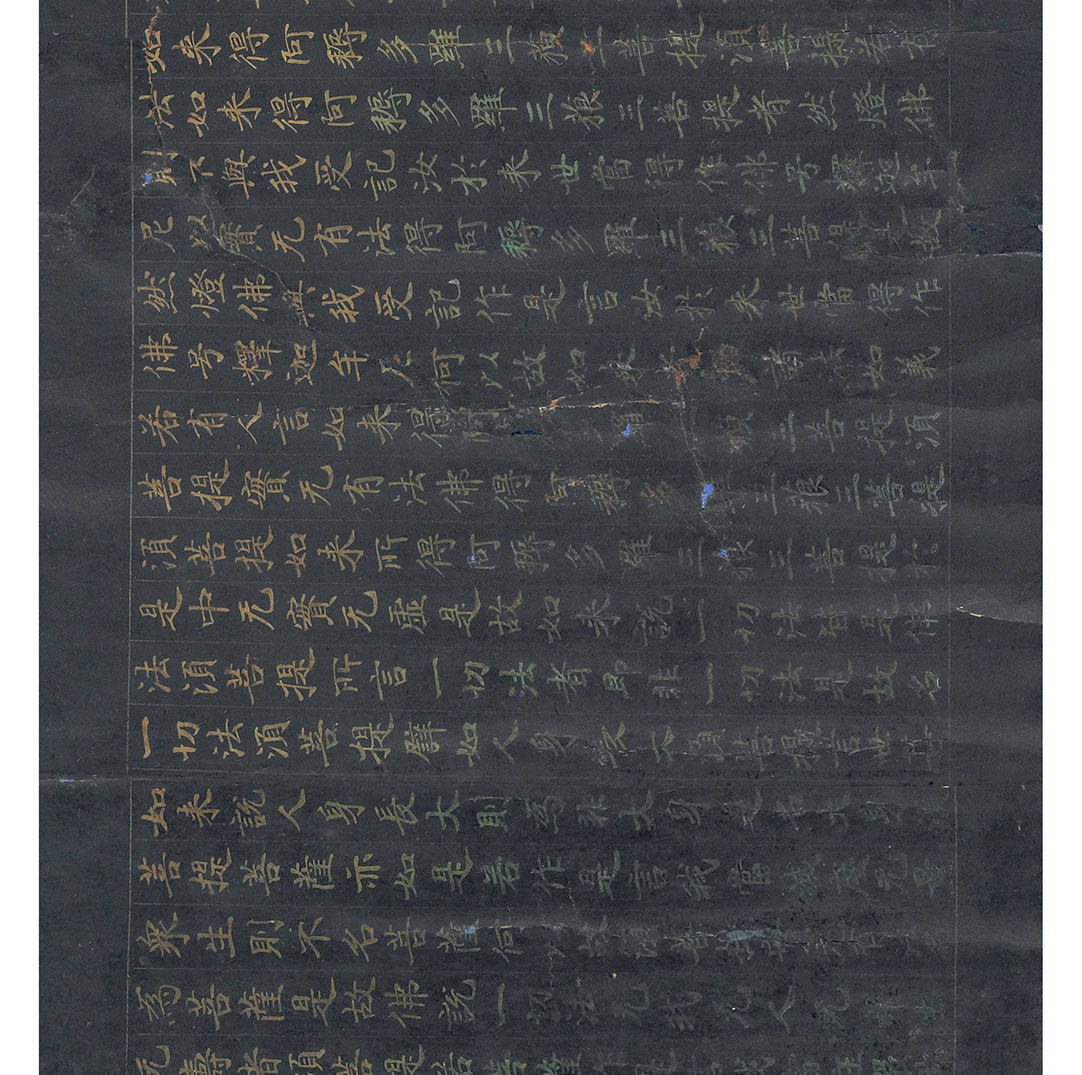 如来得阿耨多羅三藐三菩提須菩提若有
法如来得阿耨多羅三藐三菩提者然燈佛
則不與我受記汝於来世當得作佛号釋迦牟
尼以實无有法得阿耨多羅三藐三菩提是故
然燈佛與我受記作是言汝於来世當得作
佛号釋迦牟尼何以故如来者 諸法如義
若有人言如来得阿 三藐三菩提須
菩提實无有法佛得阿耨多羅三藐三菩提
須菩提如来所得阿耨多羅三藐三菩提於
是中无實无虛是故如来說一切法皆是佛
法須菩提所言一切法者即非一切法是故名
一切法須菩提譬如人身長大須菩提言世尊
如来說人身長大則爲非大身是名大身
菩提菩薩亦如是若作是言我當滅度无量
衆生則不名菩薩何以故須菩提
爲菩薩是故佛說一切法无我无人无衆生
无壽者須菩提若菩薩作是言我當